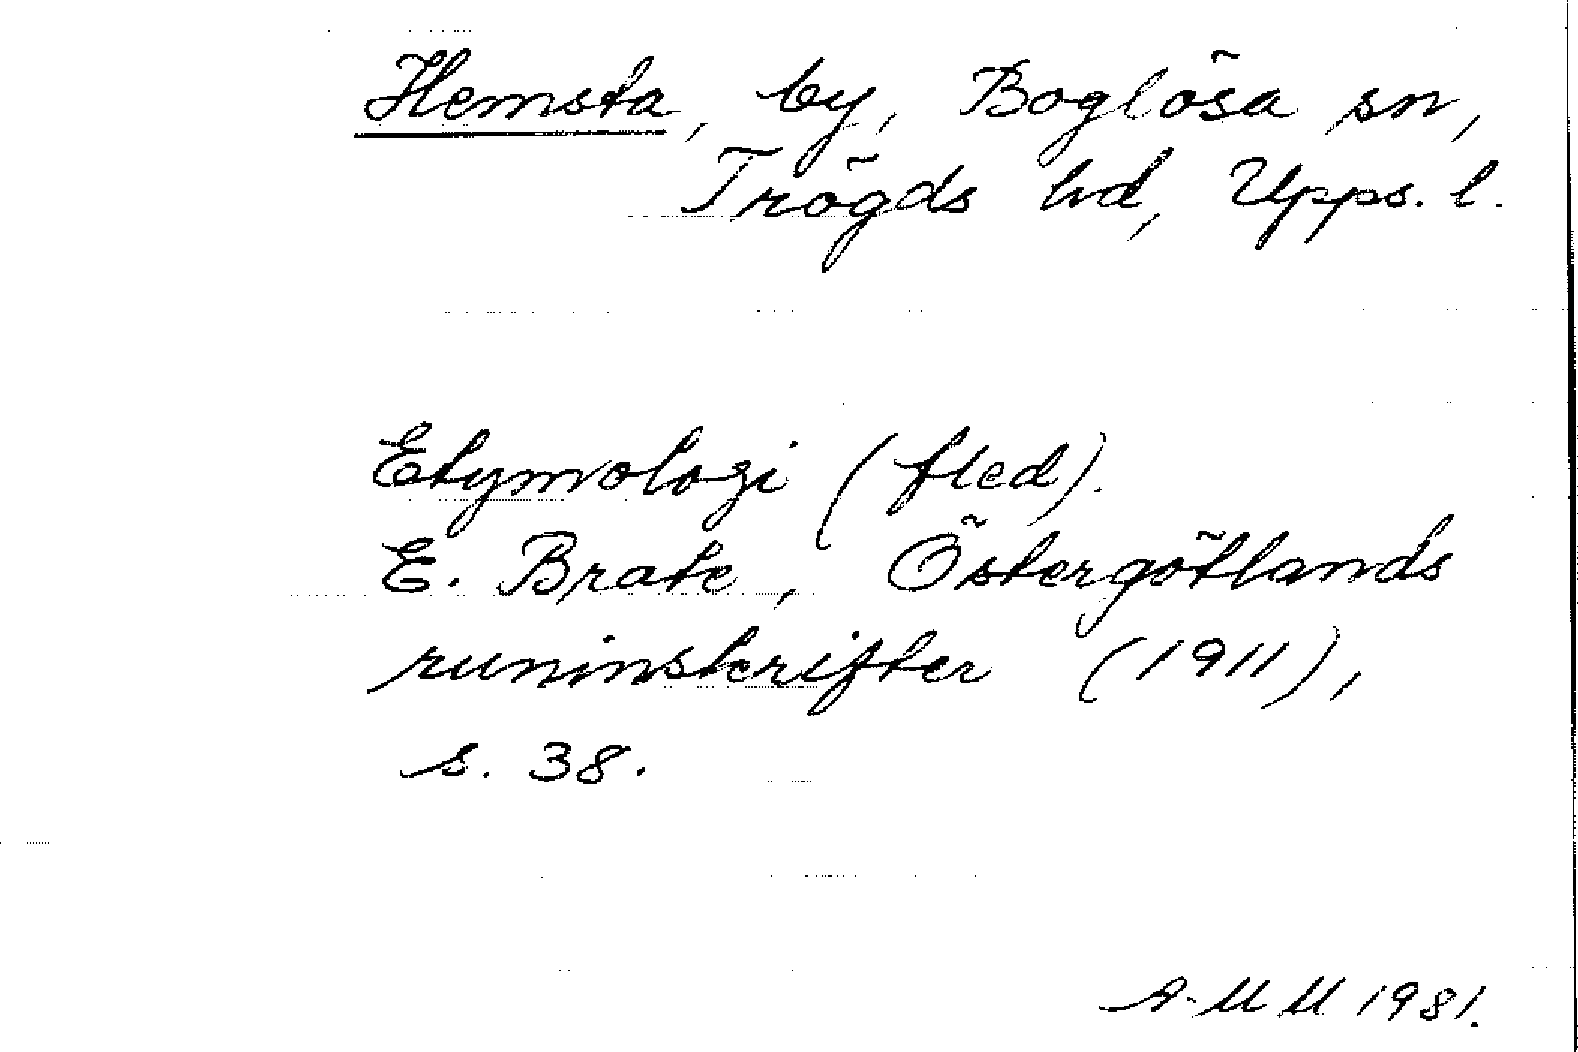 Hemsta, by, Boglösa sn,
Trögds hd, Upps. l.
Etymologi (fled).
E. Brate, Östergötlands
runinskrifter (1911),
s. 38.
A-MM 1981.